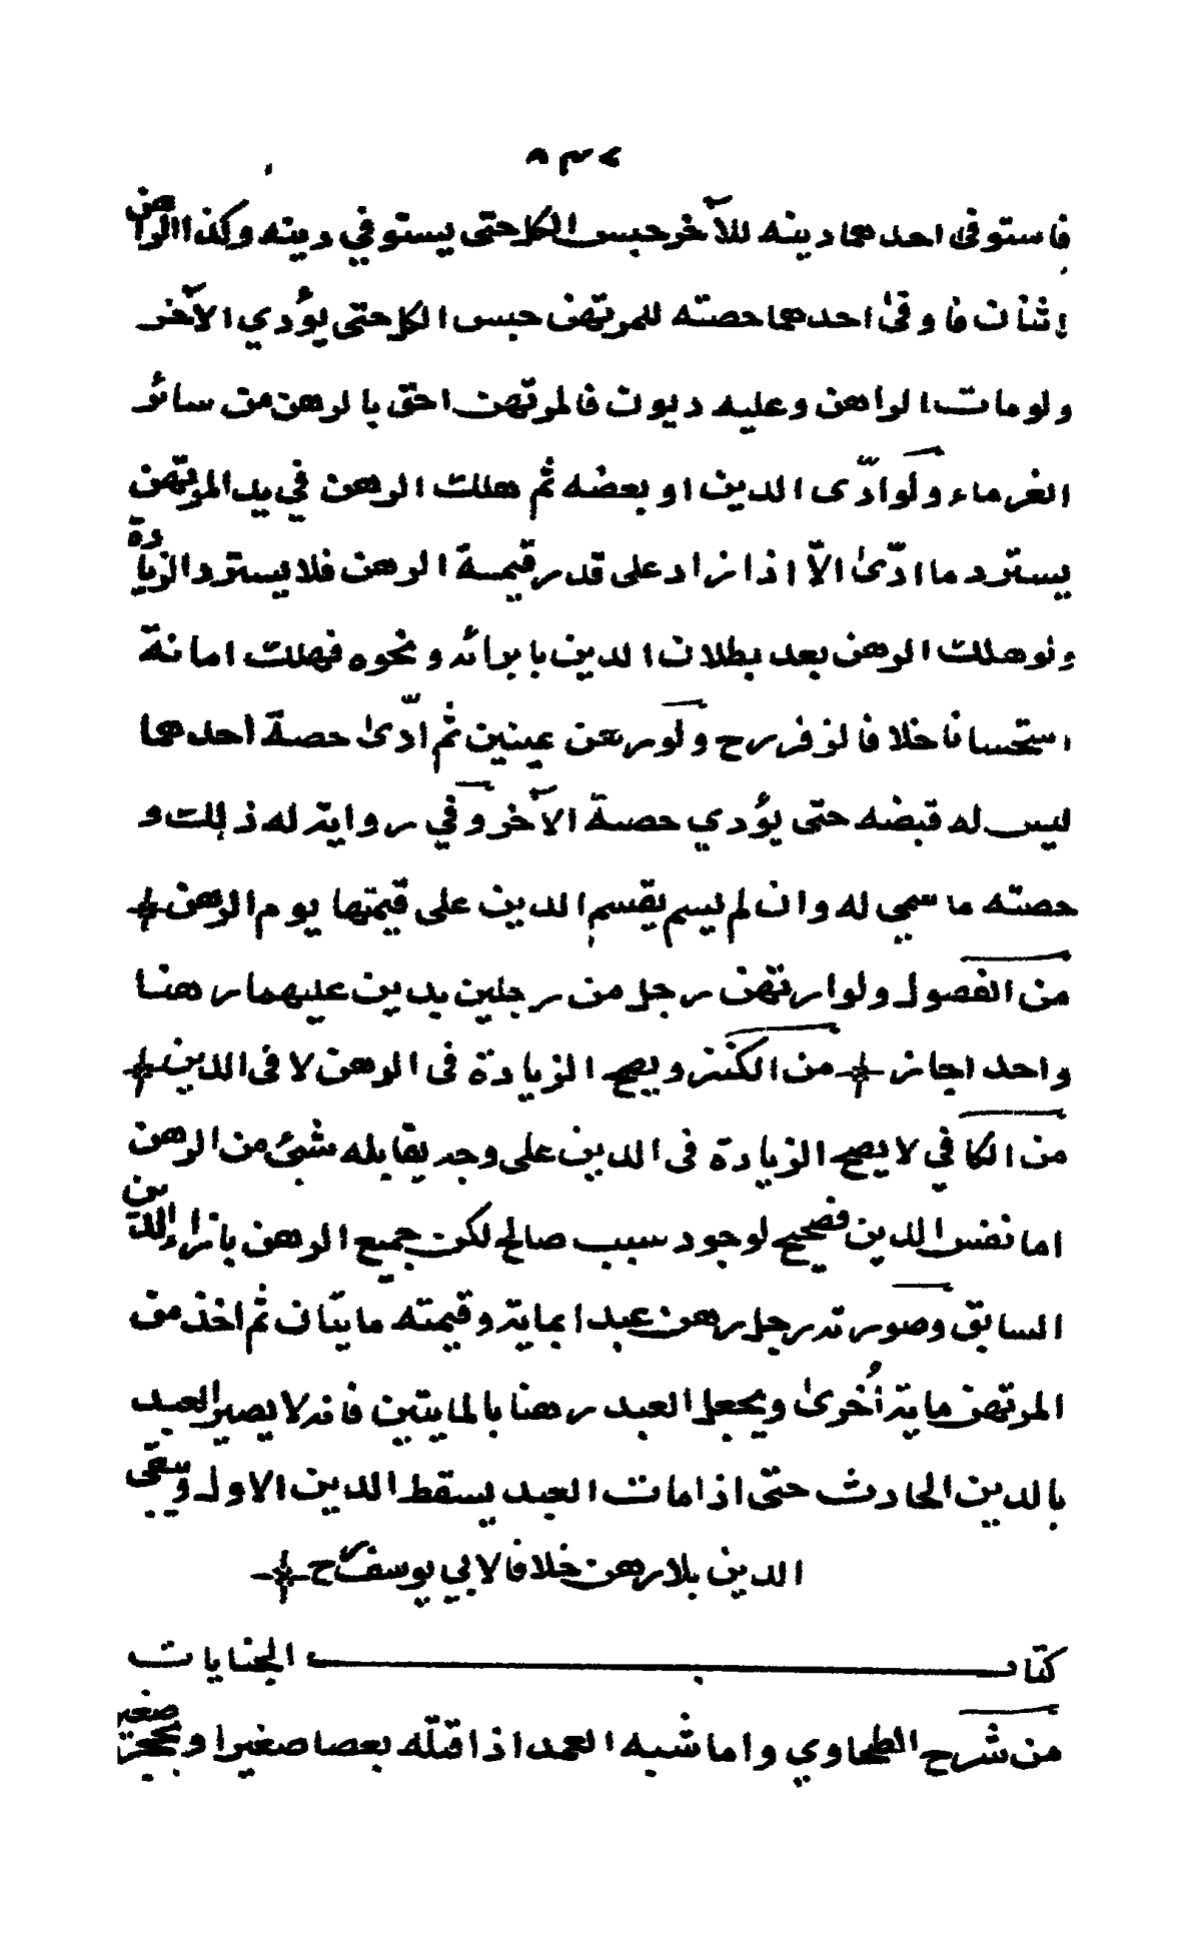 ٨٣٧
فاستوفى احدهما دينه للآخر حبس الكل حتى يستوفي دينه وكذا الراهن
اثنان فاوفى احدهما حصته للمرتهن حبس الكل حتى يؤدي الآخر
ولو مات الراهن وعليه ديون فالمرتهن احق بالرهن من سائر
الغرماء ولو ادّى الدين او بعضه ثم هلك الرهن في يد المرتهن
يسترد ما ادّى الاّ اذا زاد على قدر قيمة الرهن فلا يسترد الزيادة
ولو هلك الرهن بعد بطلان الدين بابرائه ونحوه فهلك امانة
استحسانا خلافا لزفر رح ولو رهن عينين ثم ادّى حصة احدهما
ليس له قبضه حتى يؤدي حصة الآخر وفي رواية له ذلك و
حصته ما سمي له وان لم يسم يقسم الدين على قيمتها يوم الرهن
من الفصول ولو ارتهن رجل من رجلين بدين عليهما رهنا
واحدا جاز من الكنز ويصح الزيادة فى الرهن لا فى الدين
من الكافي لا يصح الزيادة فى الدين على وجه يقابله شئ من الرهن
اما نفس الدين فصحيح لوجود سبب صالح لكن جميع الرهن بازاء الدين
السابق وصورته رجل رهن عبدا بماية وقيمته مايتان ثم اخذ من
المرتهن ماية أخرى ويجعل العبد رهنا بالمايتين فانه لا يصير العبد
بالدين الحادث حتى اذا مات العبد يسقط الدين الاول ويبقى
الدين بلا رهن خلافا لابي يوسف رح
كتاب الجنايات
من شرح الطحاوي واما شبه العمد اذا قتله بعصا صغيرا وبحجر صغير